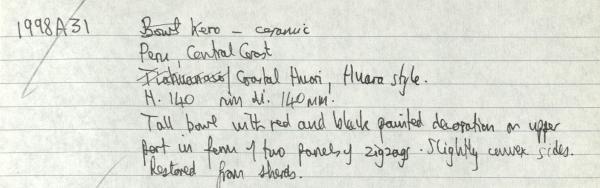 1998A31 Bowl Kero - ceramic
Peru, Central Coast
Tiahuanaco/Coastal Huari, Huara style.
H. 140 mm di. 140mm.
Tall bowl with red and black painted decoration on upper
part in form of two panels of zigzags. Slightly convex sides.
Restored from sherds.